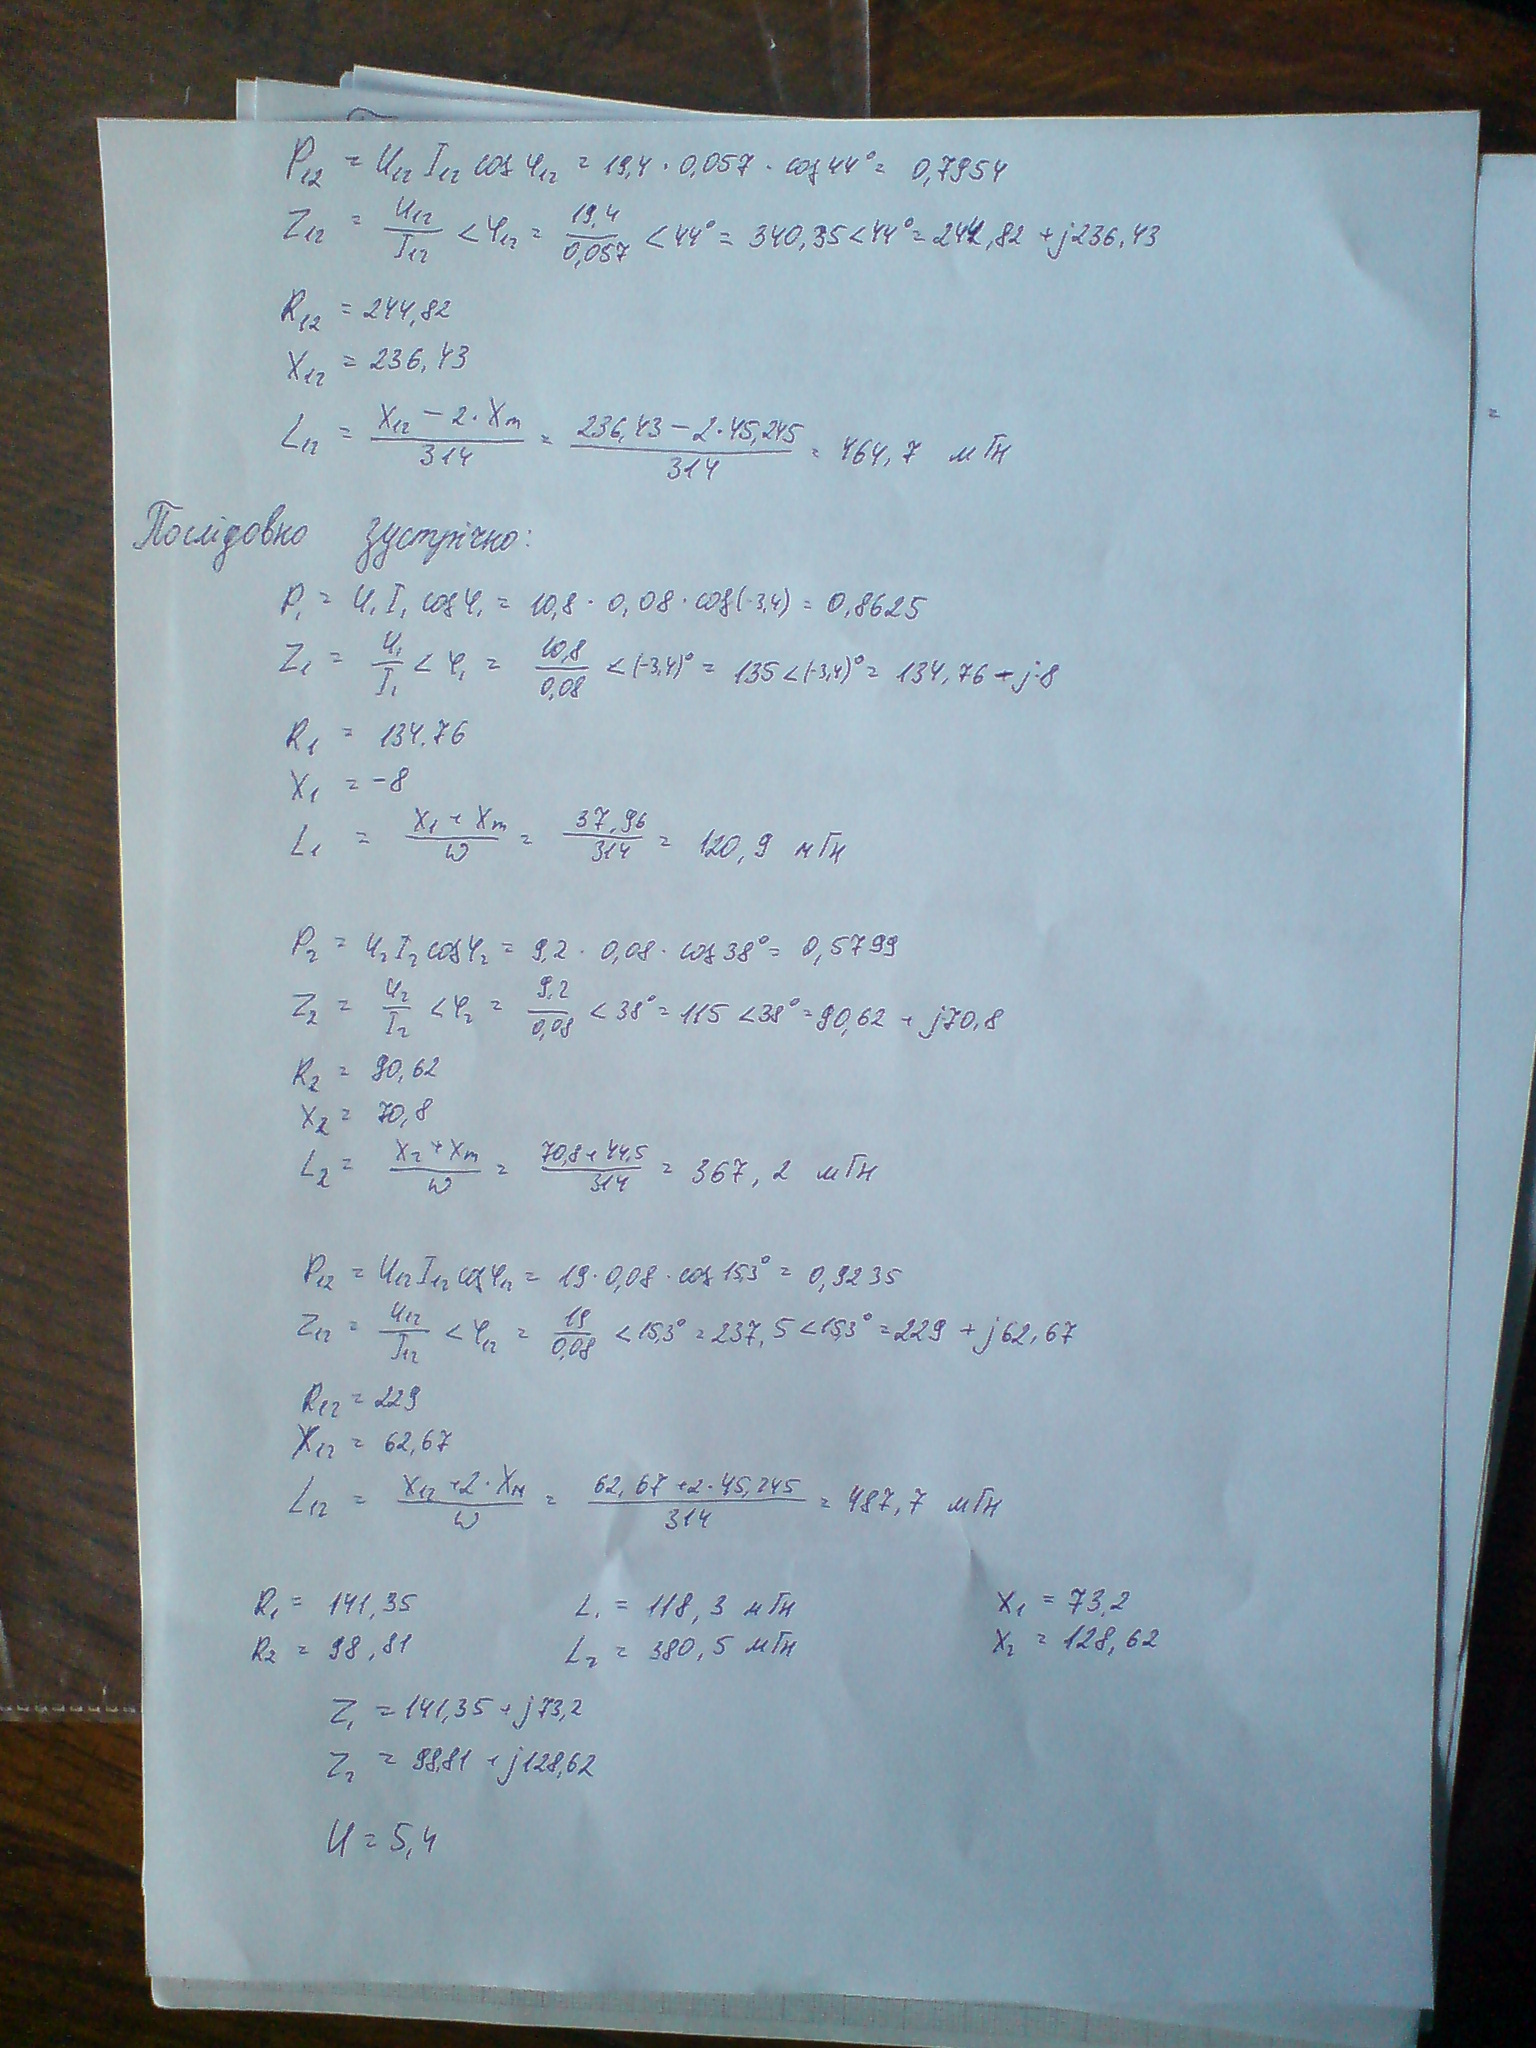 P₁₂ = U₁₂ I₁₂ cos φ₁₂ = 19,4 · 0,057 · cos 44° = 0,7954
Z₁₂ = U₁₂/I₁₂ < φ₁₂ = 19,4/0,057 < 44° = 340,35 < 44° = 244,82 + j236,43
R₁₂ = 244,82
X₁₂ = 236,43
L₁₂ = (X₁₂ - 2·Xm)/314 = (236,43 - 2·45,245)/314 = 464,7 мГн
Послідовно зустрічно:
P₁ = U₁ I₁ cos φ₁ = 10,8 · 0,08 · cos(-3,4) = 0,8625
Z₁ = U₁/I₁ < φ₁ = 10,8/0,08 < (-3,4)° = 135 < (-3,4)° = 134,76 - j·8
R₁ = 134.76
X₁ = -8
L₁ = (X₁ + Xm)/ω = 37,96/314 = 120,9 мГн
P₂ = U₂ I₂ cos φ₂ = 9,2 · 0,08 · cos 38° = 0,5799
Z₂ = U₂/I₂ < φ₂ = 9,2/0,08 < 38° = 115 < 38° = 90,62 + j70,8
R₂ = 90,62
X₂ = 70,8
L₂ = (X₂ + Xm)/ω = (70,8 + 44,5)/314 = 367,2 мГн
P₁₂ = U₁₂ I₁₂ cos φ₁₂ = 19 · 0,08 · cos 15,3° = 0,9235
Z₁₂ = U₁₂/I₁₂ < φ₁₂ = 19/0,08 < 15,3° = 237,5 < 15,3° = 229 + j62,67
R₁₂ = 229
X₁₂ = 62,67
L₁₂ = (X₁₂ + 2·Xм)/ω = (62,67 + 2·45,245)/314 = 487,7 мГн
R₁ = 141,35 L₁ = 118,3 мГн X₁ = 73,2
R₂ = 98,81 L₂ = 380,5 мГн X₂ = 128,62
Z₁ = 141,35 + j73,2
Z₂ = 98,81 + j128,62
U = 5,4